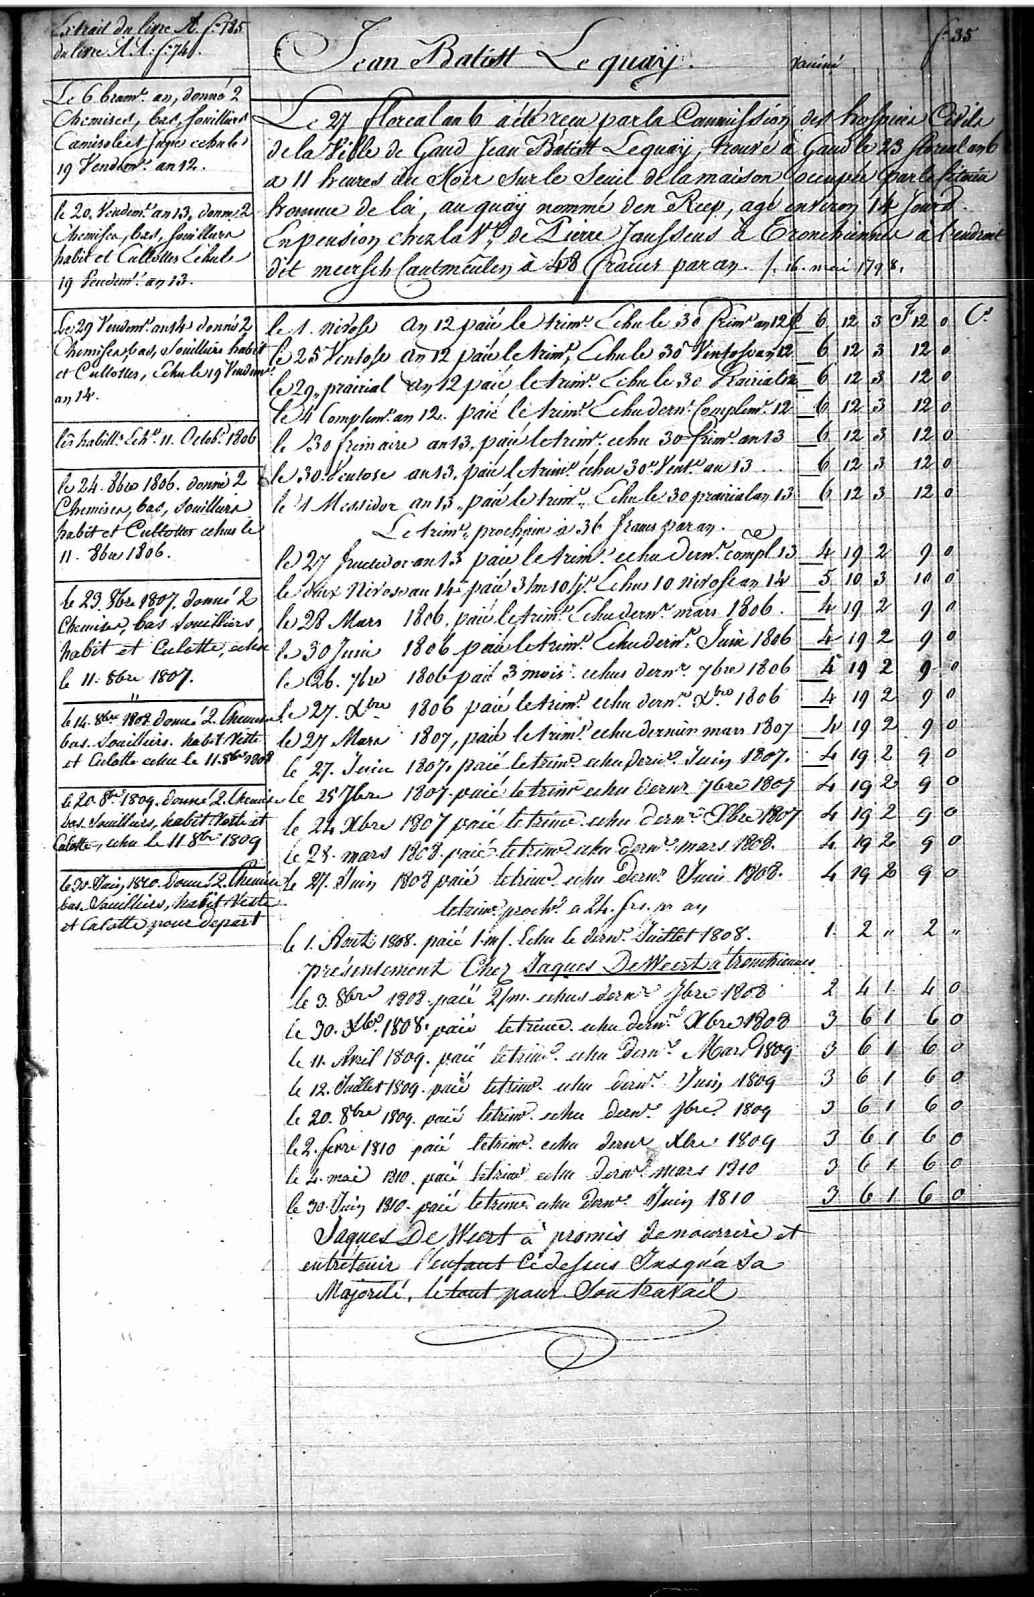 Extrait du livre A. f. 185
du livre AA. f. 74.
f. 35
Jean Batist Lequaij.
Vacciné
Le 27 floreal an 6 a été reçu par la Commission des hospices Civils
de la Ville de Gand Jean Batist Lequay, trouvé à Gand le 23 floreal an 6
a 11 heures du Soir sur le Seuil de la maison occupée par le
homme de loi, au quay nommé den Reep, agé environ 14 Jours.
En pension chez la Ve. de Pierre Janssens à Tronchiennes a l'endroit
dit meersch Cautmeulen à 48 francs par an. /. 16. mai 1798.
Le 6 brumre. an, donné 2
Chemises, bas, souilliers
Camisole et Jupe echu le
19 Vendemre. an 12.
le 20. Vendemre. an 13. donné 2
Chemises, bas, souilliers
habit et Cullottes Echu le
19 Vendemre. an 13.
Le 29 Vendemre. an 14 donné 2
Chemises, bas, souilliers habit
et Cullottes, echu le 19 Vendemre.
an 14.
les habillts. Echs. 11. Octob. 1806
le 24. 8bre 1806. donné 2
Chemises, bas, souilliers
habit et Cullottes echus le
11. 8bre 1806.
le 23. 8bre 1807. donné 2
Chemises, bas souilliers,
habit et Culotte, echu
le 11. 8bre 1807.
le 14. 8bre 1808 donné 2. Chemises
bas. souilliers. habit Veste
et Culotte echu le 11. 8bre 1808
le 20. 8bre 1809. donné 2. Chemises
bas. souilliers, habit Veste et
Culotte, echu le 11 8bre 1809
le 30. Juin 1810. donné 2. Chemises
bas. souilliers, habit Veste
et Culotte pour depart
le 1. nivose an 12 paié le trimre. Echu le 30 frimre an 12 £ 6 12 3 F 12 0 Cs.
le 25 Ventose an 12 paié le trimre. Echu le 30 Ventose an 12 6 12 3 12 0
le 29 prairial an 12 paié le trimre. Echu le 30 Prairial 6 12 3 12 0
le 4 Complemre. an 12. paié le trimre. Echu dernr. Complemre. 12 6 12 3 12 0
le 30 frimaire an 13. paié le trimre. echu 30 frimre. an 13 6 12 3 12 0
le 30. Ventose an 13. paié le trimre. echu 30 Vente. an 13 .. 6 12 3 12 0
le 1 Messidor an 13. paié le trimre. Echu le 30 prairial an 13 6 12 3 12 0
Le trimre. prochain à 36 francs par an.
le 27 fructidor an 13 paié le trimre. echu dernr. compl. 13 4 19 2 9 0
le dix Nivose an 14 paié 3/m 10/js. Echus 10 nivose an 14 5 10 3 10 0
le 28 Mars 1806. paié le trimre. Echu dernr. mars 1806. 4 19 2 9 0
le 30 Juin 1806 paié le trimre. Echu dernr. Juin 1806 4 19 2 9 0
le 26. 7bre 1806 paié 3 mois echus dernr. 7bre 1806 4 19 2 9 0
le 27. Xbre 1806 paié le trimre. echu dernr. Xbre 1806 4 19 2 9 0
le 27 Mars 1807, paié le trimre. echu dernier mars 1807 4 19 2 9 0
le 27. Juin 1807. paié le trimre echu dernr. Juin 1807. 4 19 2 9 0
le 25 7bre 1807. paié le trimre echu dernr 7bre 1807 4 19 2 9 0
le 24 Xbre 1807 paié le trimre. echu dernr. Xbre 1807 4 19 2 9 0
le 28. mars 1808. paié le trimre. echu dernr. mars 1808. 4 19 2 9 0
le 27. Juin 1808 paié le trimre. echu dernr. Juin 1808. 4 19 2 9 0
le trimre. proche. a 24. frs. pr an
le 1. Aout 1808. paié 1.m/. Echu le dernr. Juillet 1808. 1. 2 " 2 "
présentement Chez Jaques De Weert à tronchiennes
le 3. 8bre 1808. paié 2/m. echus dernr. 7bre 1808 2 4 1 4 0
le 30. Xbre. 1808. paié le trimre. echu dernr. Xbre 1808 3 6 1 6 0
le 11. Avril 1809. paié le trimre. echu dernr. Mars 1809 3 6 1 6 0
le 12. Juillet 1809. paié le trimre. echu dernr. Juin 1809 3 6 1 6 0
le 20. 8bre 1809. paié le trimre. echu dernr. 7bre 1809 3 6 1 6 0
le 2. fevre 1810 paié le trimre. echu dernr Xbre 1809 3 6 1 6 0
le 2. mai 1810. paié le trimre echu dernr. mars 1810 3 6 1 6 0
le 30. Juin 1810. paié le trimre echu dernr. Juin 1810 3 6 1 6 0
Jaques De Weert a promis de nourrire et
entretenir l'enfant cidessus Jusqu'a Sa
Majorité, le tout pour Son travail